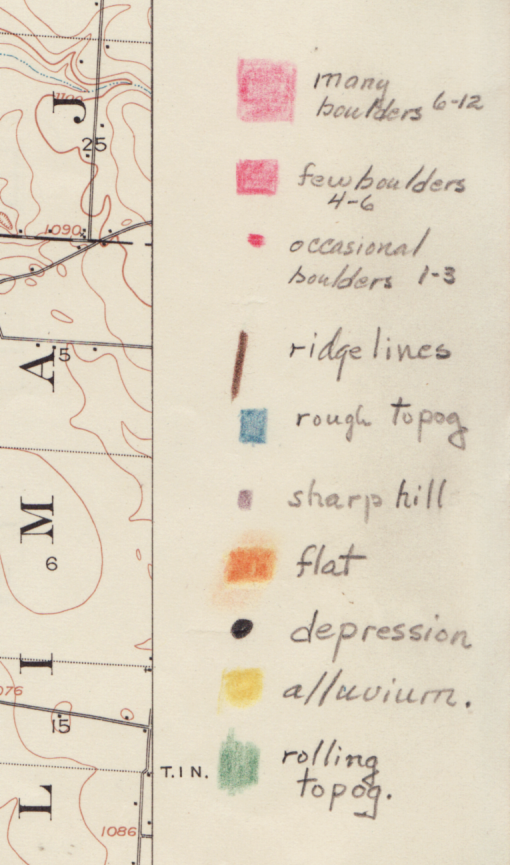 many
boulders 6-12
few boulders
4-6
occasional
boulders 1-3
ridge lines
rough topog
sharp hill
flat
depression
alluvium.
rolling
topog.
J
1100
25
1090
A
5
M
6
I
076
15
T.1N.
L
1086